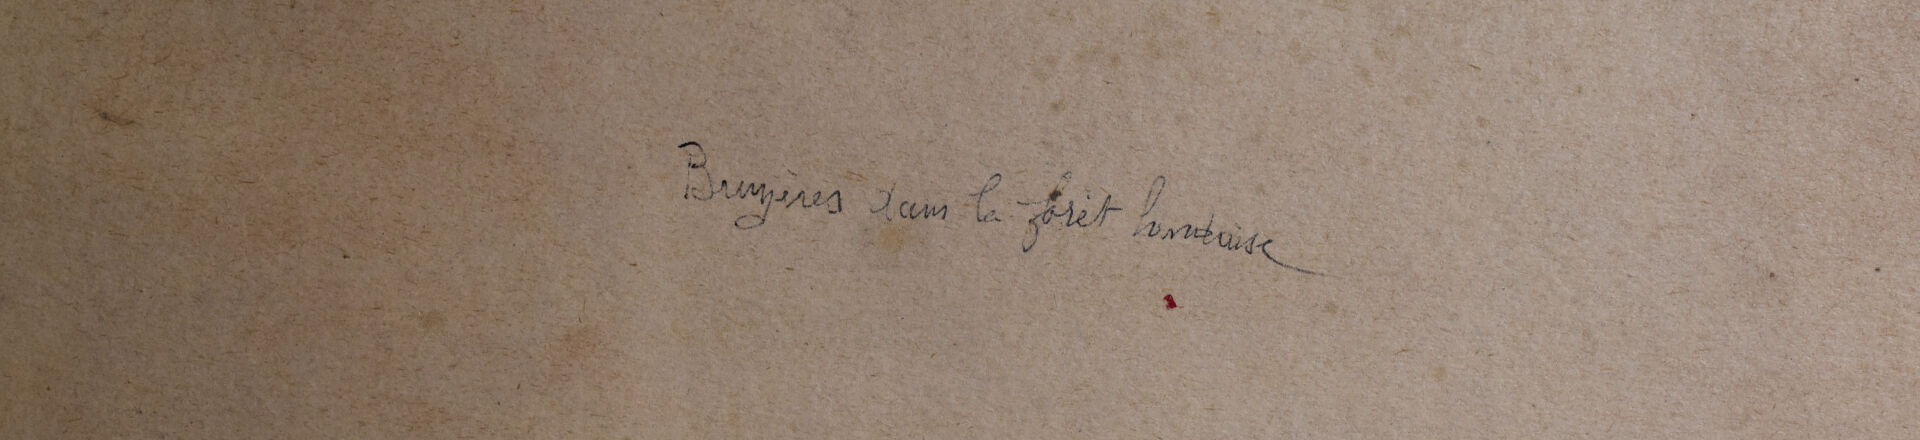 Bruyères dans la forêt landaise